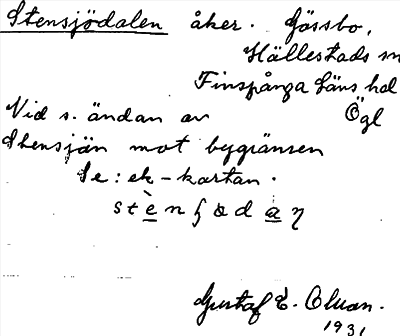 Stensjödalen åker. Gössbo,
Hällestads sn
Finspånga läns hd
Vid s. ändan av Ögl
Stensjön mot bygränsen
Se: ek-kartan.
Gustaf E. Olson.
1931